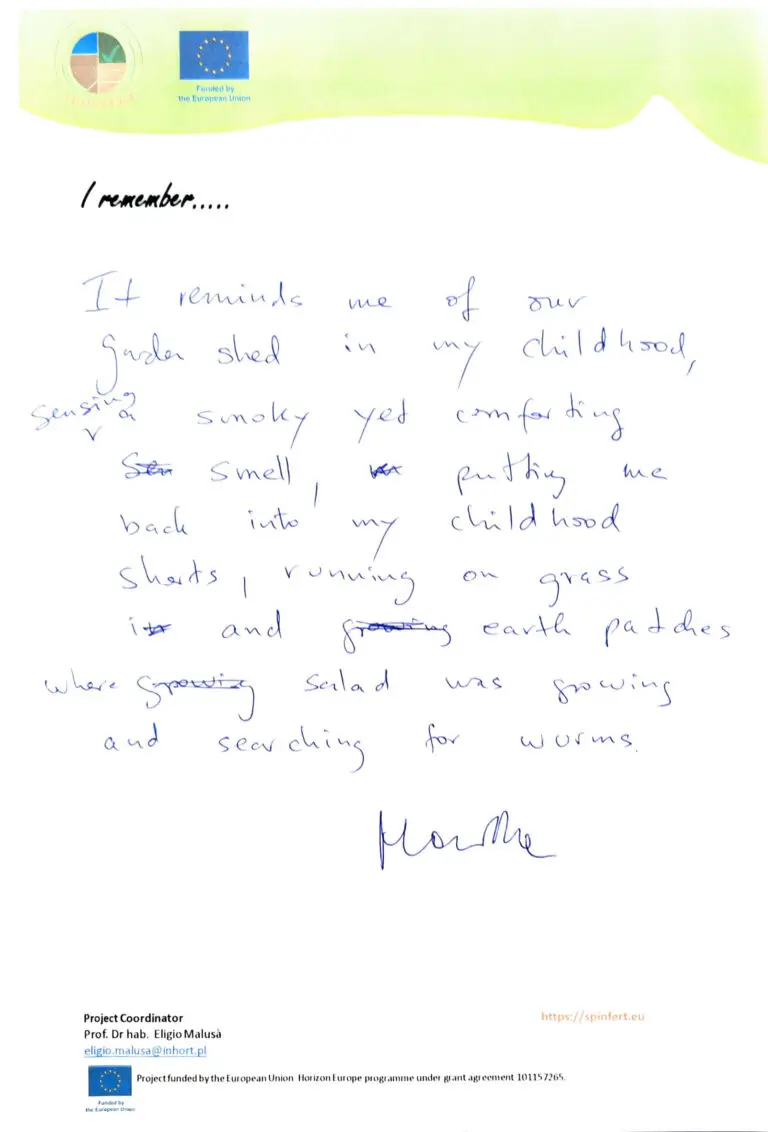 Funded by
the European Union
I remember.....
It reminds me of our
garden shed in my childhood,
sensing a smoky yet comforting
smell, putting me
back into my childhood
shorts, running on grass
and earth patches
where salad was growing
and searching for worms.
Project Coordinator
Prof. Dr hab. Eligio Malusà
eligio.malusa@inhort.pl
https://spinfert.eu
Funded by
the European Union
Project funded by the European Union Horizon Europe programme under grant agreement 101157265.